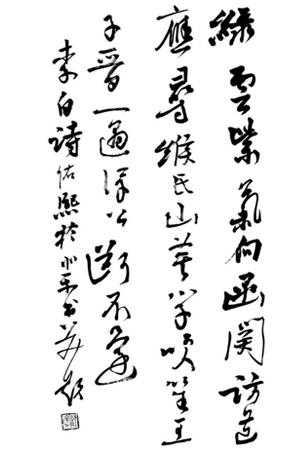 綠雲紫氣向函關訪道
應尋緱氏山莫學吹笙王
子晉一遇浮丘斷不還
李白詩佑熙於北京